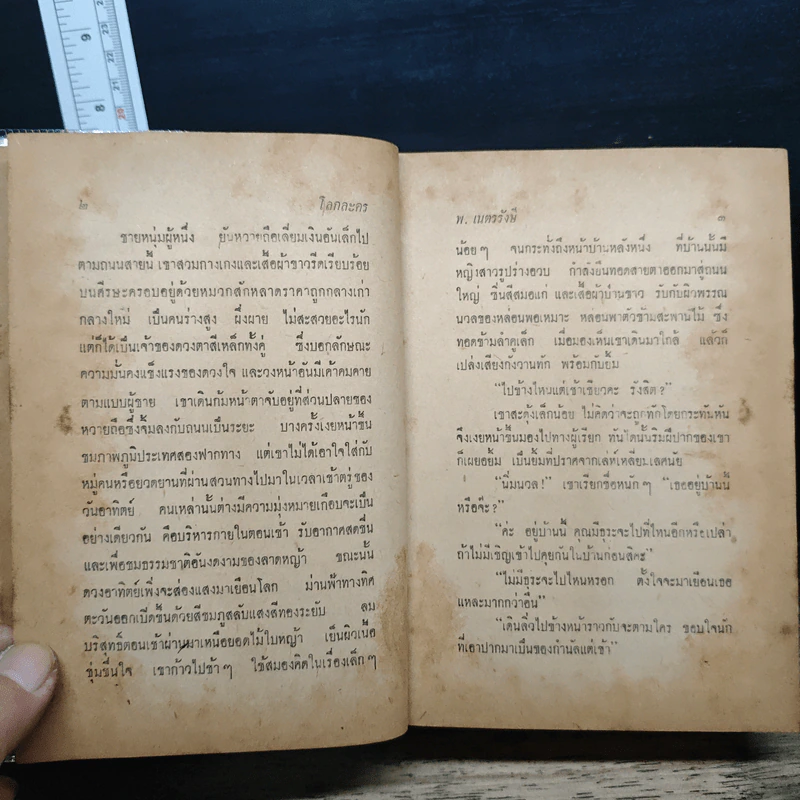 9
8
22
21
20
๒
โลกละคร
ชายหนุ่มผู้หนึ่ง ยันหวายถือเลี่ยมเงินอันเล็กไป
ตามถนนสายนี้ เขาสวมกางเกงและเสื้อผ้าขาวรีดเรียบร้อย
บนศีรษะครอบอยู่ด้วยหมวกสักหลาดราคาถูกกลางเก่า
กลางใหม่ เป็นคนร่างสูง ผึ่งผาย ไม่สะสวยอะไรนัก
แต่ก็ได้เป็นเจ้าของดวงตาสีเหล็กทั้งคู่ ซึ่งบอกลักษณะ
ความมั่นคงแข็งแรงของดวงใจ และวงหน้าอันมีเค้าคมคาย
ตามแบบผู้ชาย เขาเดินก้มหน้าตาจับอยู่ที่ส่วนปลายของ
หวายถือซึ่งจิ้มลงกับถนนเป็นระยะ บางครั้งเงยหน้าขึ้น
ชมภาพภูมิประเทศสองฟากทาง แต่เขาไม่ได้เอาใจใส่กับ
หมู่คนหรือยวดยานที่ผ่านสวนทางไปมาในเวลาเช้าตรู่ของ
วันอาทิตย์ คนเหล่านั้นต่างมีความมุ่งหมายเกือบจะเป็น
อย่างเดียวกัน คือบริหารกายในตอนเช้า รับอากาศสดชื่น
และเพื่อชมธรรมชาติอันงดงามของลาดหญ้า ขณะนั้น
ดวงอาทิตย์เพิ่งจะส่องแสงมาเยือนโลก ม่านฟ้าทางทิศ
ตะวันออกเบิดขึ้นด้วยสีชมภูสลับแสงสีทองระยับ ลม
บริสุทธิ์ตอนเช้าผ่านมาเหนือยอดไม้ใบหญ้า เย็นผิวเนื้อ
ชุ่มชื่นใจ เขาก้าวไปช้า ๆ ใช้สมองคิดในเรื่องเล็ก ๆ
พ. เนตรรังษี
๓
น้อย ๆ จนกระทั่งถึงหน้าบ้านหลังหนึ่ง ที่บ้านนั้นมี
หญิงสาวรูปร่างอวบ กำลังยืนทอดสายตาออกมาสู่ถนน
ใหญ่ ซิ่นสีสมอแก่ และเสื้อผ้าป่านขาว รับกับผิวพรรณ
นวลของหล่อนพอเหมาะ หล่อนพาตัวข้ามสะพานไม้ ซึ่ง
ทอดข้ามลำคูเล็ก เมื่อมองเห็นเขาเดินมาใกล้ แล้วก็
เปล่งเสียงกังวานทัก พร้อมกับยิ้ม
“ไปข้างไหนแต่เช้าเชียวคะ รังสิต?”
เขาสะดุ้งเล็กน้อย ไม่คิดว่าจะถูกทักโดยกระทันหัน
จึงเงยหน้าขึ้นมองไปทางผู้เรียก ทันใดนั้นริมฝีปากของเขา
ก็เผยอยิ้ม เป็นยิ้มที่ปราศจากเล่ห์เหลี่ยมเลศนัย
“นิ่มนวล!” เขาเรียกชื่อหนัก ๆ “เธออยู่บ้านนี้
หรือจ๊ะ?”
“ค่ะ อยู่บ้านนี้ คุณมีธุระจะไปที่ไหนอีกหรือเปล่า
ถ้าไม่มีเชิญเข้าไปคุยกันในบ้านก่อนสิคะ”
“ไม่มีธุระจะไปไหนหรอก ตั้งใจจะมาเยือนเธอ
แหละมากกว่าอื่น”
“เดินลิ่วไปข้างหน้าราวกับจะตามใคร ขอบใจนัก
ที่เอาปากมาเป็นของกำนัลแต่เช้า”